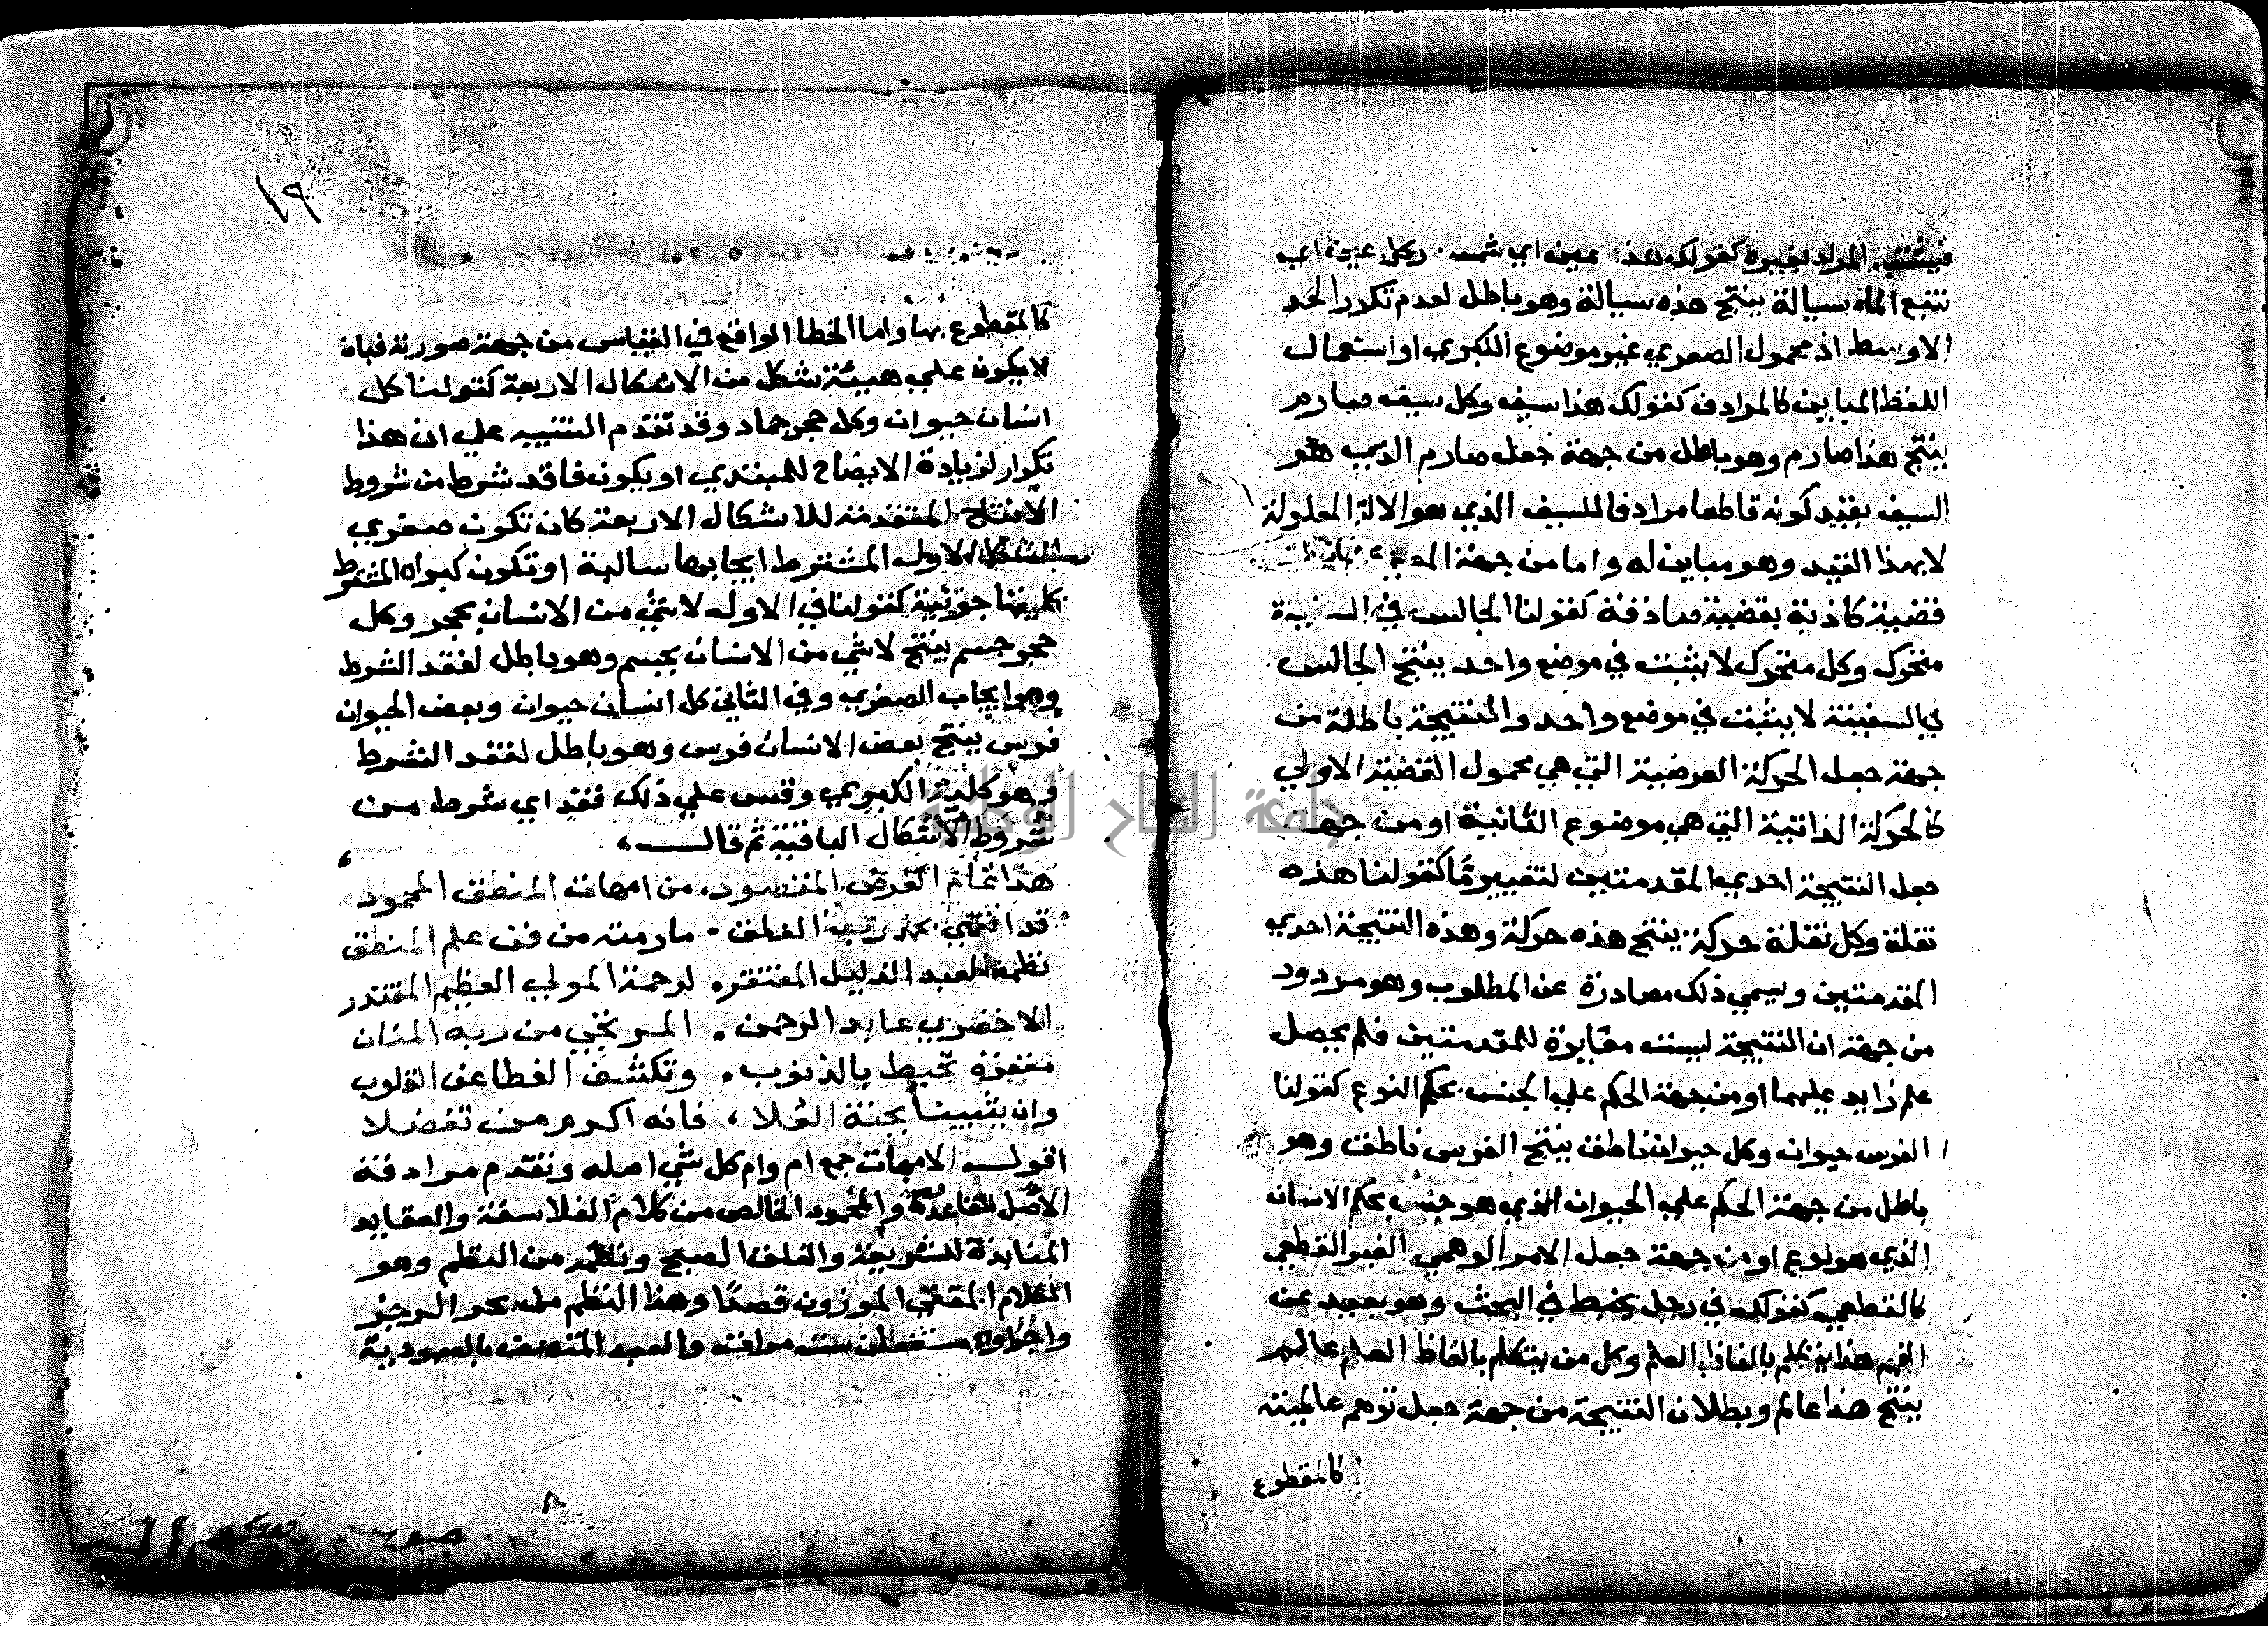 فيشتبه المراد بغيره كقولك هذه عين اي شمس وكل عين اي
تنبع الماء سيالة ينتج هذه سيالة وهو باطل لعدم تكرر الحد
الاوسط اذ محمول الصغري غير موضوع الكبري او استعمال
اللفظ المباين كالمرادف كقولك هذا سيف وكل سيف صارم
ينتج هذا صارم وهو باطل من جهة جعل صارم الذي هو
السيف بقيد كونه قاطعا مرادفا للسيف الذي هو الالة المعلولة
لا بهذا القيد وهو مباين له واما من جهة
قضية كاذبة بقضية صادقة كقولنا الجالس في السفينة
متحرك وكل متحرك لا يثبت في موضع واحد ينتج الجالس
في السفينة لا يثبت في موضع واحد والنتيجة باطلة من
جهة جعل الحركة العرضية التي هي محمول القضية الاولي
كالحركة الذاتية التي هي موضوع الثانية او من جهة
جعل النتيجة احدي المقدمتين لتغيير ما كقولنا هذه
نقلة وكل نقلة حركة ينتج هذه حركة وهذه النتيجة احدي
المقدمتين ويسمي ذلك مصادرة عن المطلوب وهو مردود
من جهة ان النتيجة ليست مغايرة للمقدمتين فلم يحصل
علم زايد عليهما او من جهة الحكم علي الجنس بحكم النوع كقولنا
الفرس حيوان وكل حيوان ناطق ينتج الفرس ناطق وهو
باطل من جهة الحكم علي الحيوان الذي هو جنس بحكم الانسان
الذي هو نوع او من جهة جعل الامر الوهمي الغير القطعي
كالقطعي كقولك في رجل يخبط في البحث وهو بعيد عن
الفهم هذا يتكلم بالفاظ العلم وكل من يتكلم بالفاظ العلم عالم
ينتج هذا عالم وبطلان النتيجة من جهة جعل توهم عالميته
كالمقطوع
١٩
كالمقطوع بها واما الخطا الواقع في القياس من جهة صورته فبان
لا يكون علي هيئة شكل من الاشكال الاربعة كقولنا كل
انسان حيوان وكل حجر جماد وقد تقدم التنبيه علي ان هذا
تكرار لزيادة الايضاح للمبتدي او يكون فاقد شرط من شروط
الانتاج المتقدمة للاشكال الاربعة كان تكون صغري
الشكل الاول المشترط ايجابها سالبة او تكون كبراه المشترط
كليتها جزئية كقولنا في الاول لا شي من الانسان بحجر وكل
حجر جسم ينتج لا شي من الانسان بجسم وهو باطل لفقد الشرط
وهو ايجاب الصغري وفي الثاني كل انسان حيوان وبعض الحيوان
فرس ينتج بعض الانسان فرس وهو باطل لفقد الشرط
وهو كلية الكبري وقس علي ذلك فقد اي شرط من
شروط الاشكال الباقية ثم قال
هذا تمام الغرض المقصود من امهات المنطق المحمود
قد انتهي بحمد رب الفلق ما رمته من فن علم المنطق
نظمه العبد الذليل المفتقر لرحمة المولي العظيم المقتدر
الاخضري عابد الرحمن المرتجي من ربه المنان
مغفرة تحيط بالذنوب وتكشف الغطا عن القلوب
وان يثيبنا بجنة العلا فانه اكرم من تفضلا
اقول الامهات جمع ام وام كل شي اصله وتقدم مرادفة
الاصل للقاعدة والمحمود الخالص من كلام الفلاسفة والعقايد
المنابذة للشريعة والفلق الصبح ونظمه من النظم وهو
الكلام المقفي الموزون قصدا وهذا النظم من بحر الرجز
واجزاوه مستفعلن ست مرات والعبد المتصف بالعبودية